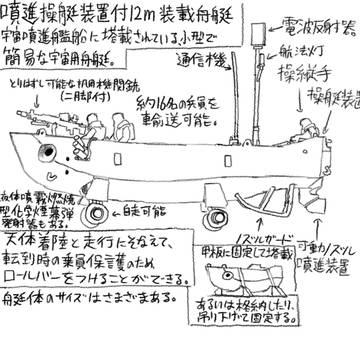 噴進操艇装置付12m装載舟艇
宇宙噴進艦船に搭載されている小型で
簡易な宇宙用舟艇。
とりはずし可能な汎用機関銃
(二脚付)
約16名の兵員を
車輸送可能。
通信機
電波反射器
航法灯
操縦手
操艇装置
液体噴霧燃焼
型化学煙幕弾
発射器もある。
自走可能
天体着陸と走行にそなえて、
転倒時の乗員保護のため
ロールバーをつけることができる。
艇体のサイズはさまざまある。
ノズルガード
甲板に固定して搭載
あるいは格納したり、
吊り下げて固定する。
可動ノズル
噴進装置